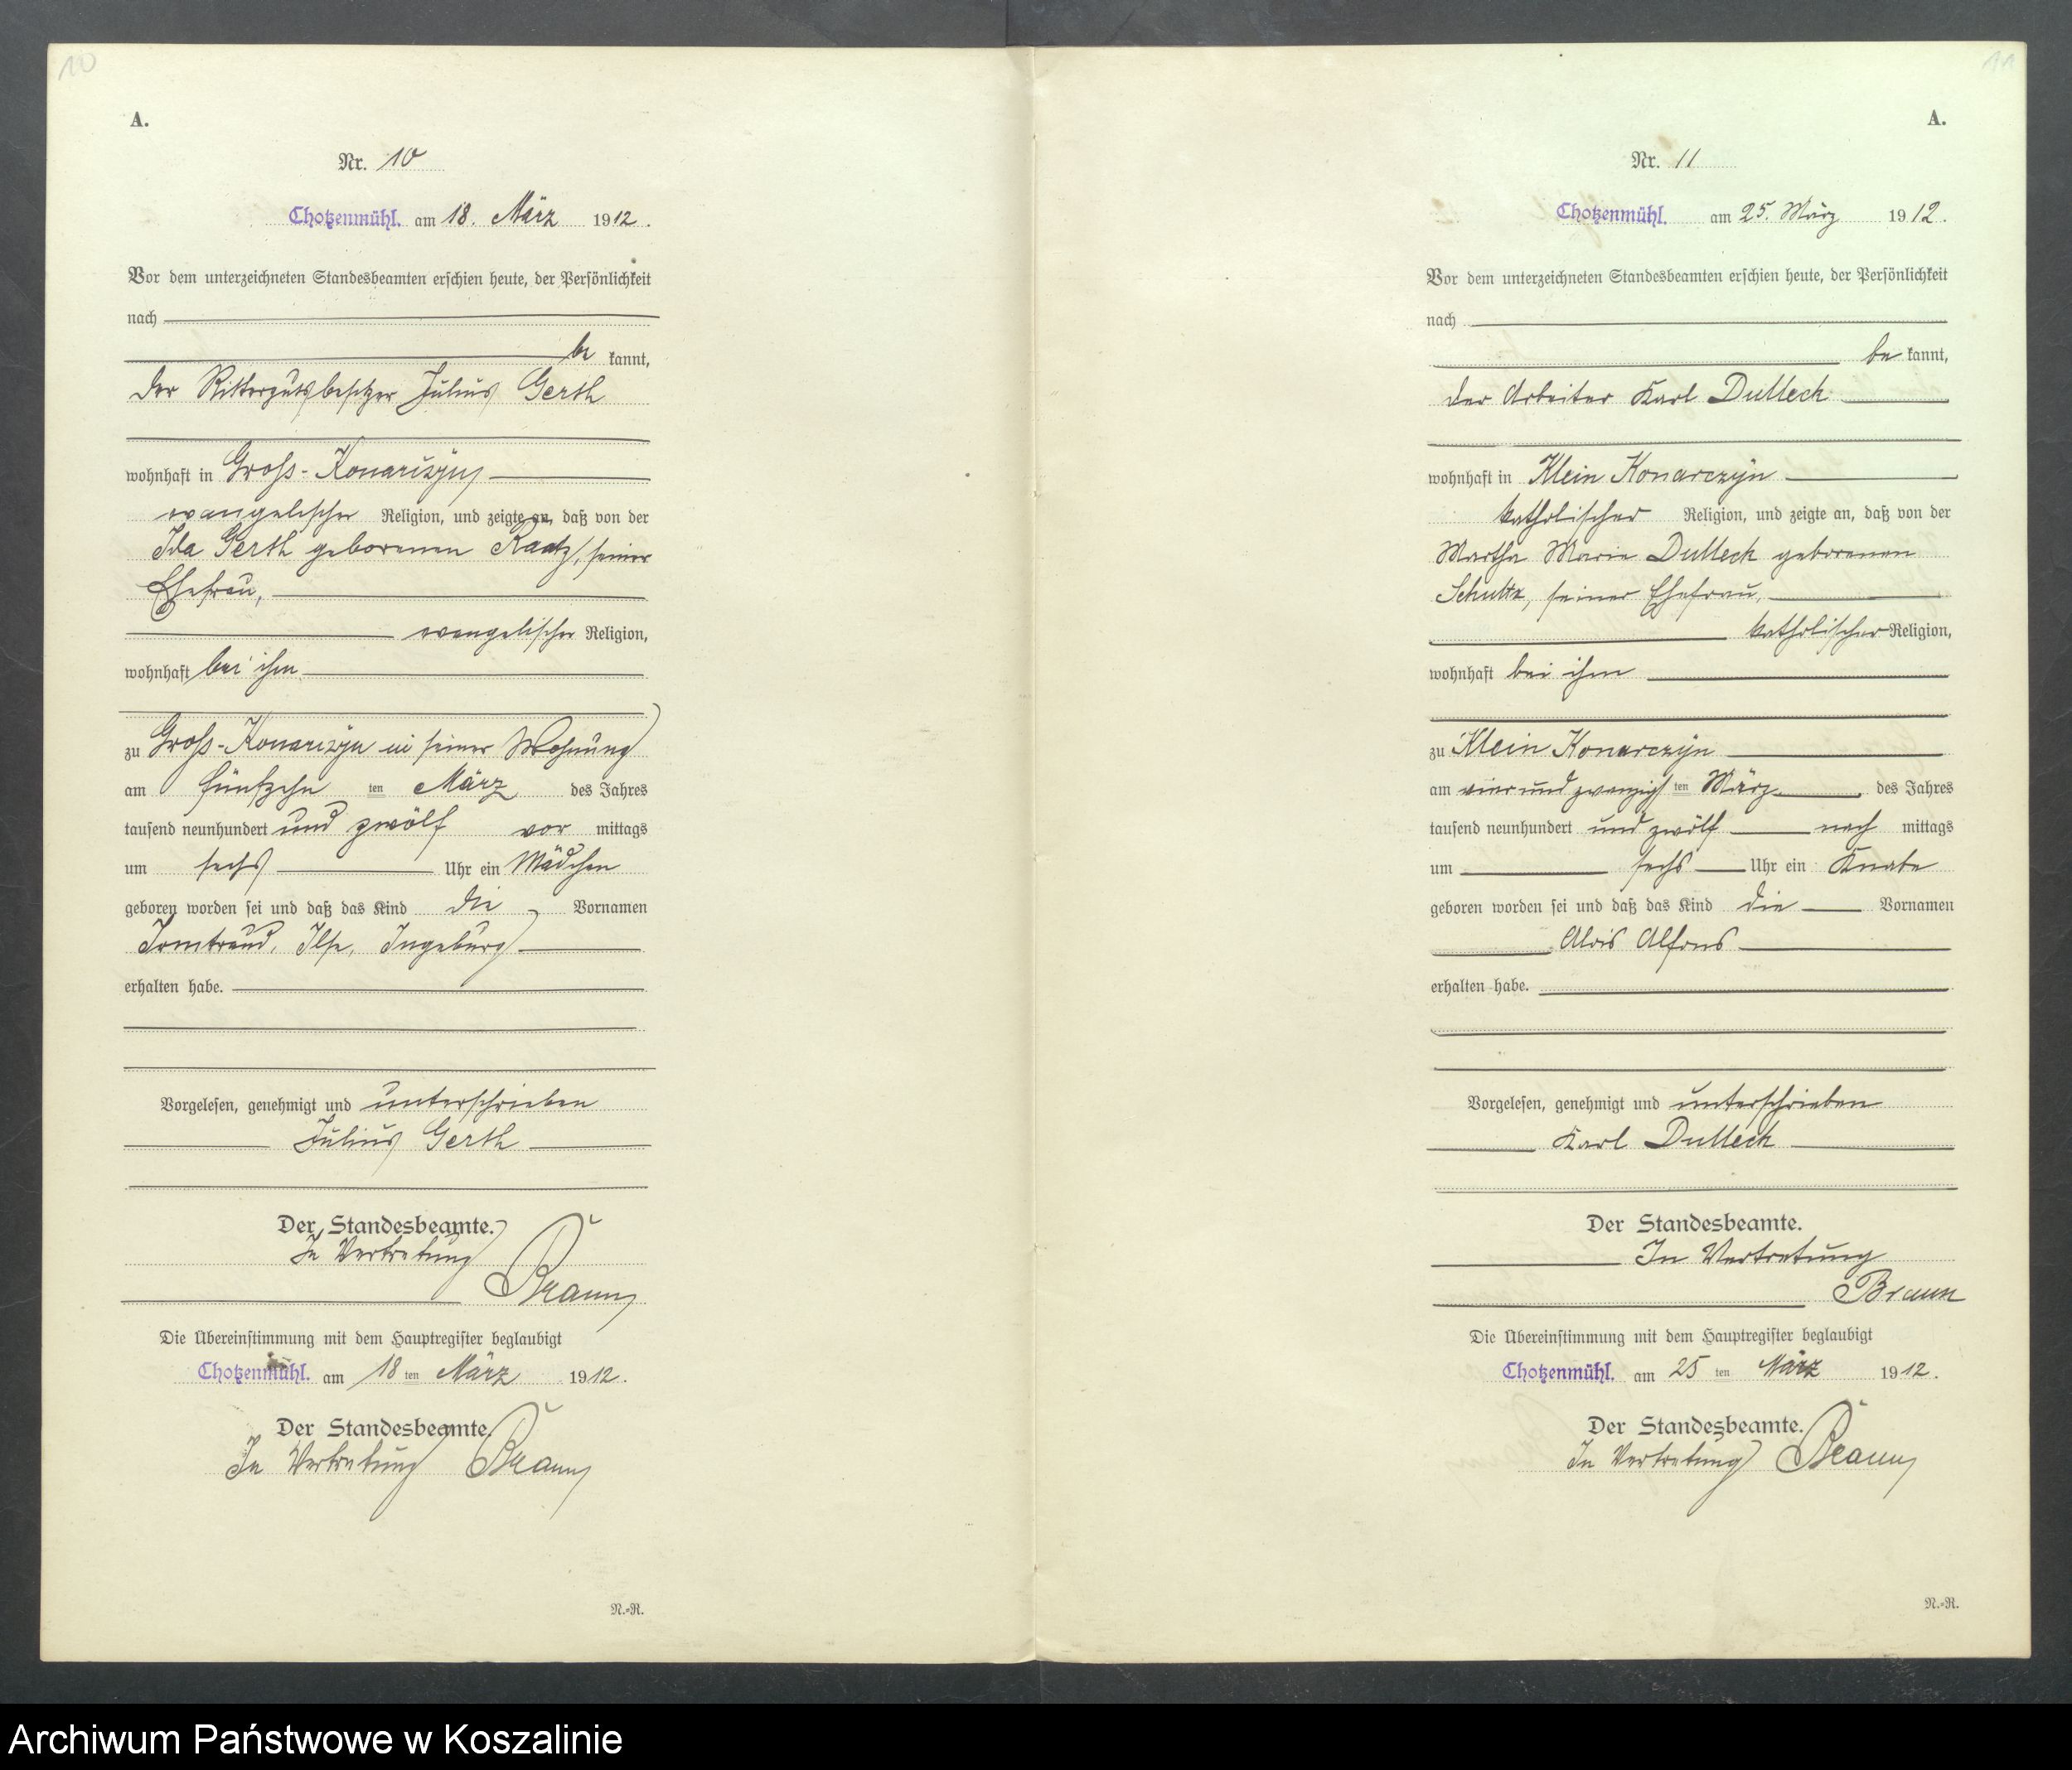 10
A.
Nr. 10
Chotzenmühl. am 18. März 1912.
Vor dem unterzeichneten Standesbeamten erschien heute, der Persönlichkeit
nach
be kannt,
der Rittergutsbesitzer Julius Gerth
wohnhaft in Gross-Konarczyn
evangelischer Religion, und zeigte an, daß von der
Ida Gerth geborenen Raatz, seiner
Ehefrau,
evangelischer Religion,
wohnhaft bei ihm
zu Gross-Konarczyn in seiner Wohnung
am fünfzehn ten März des Jahres
tausend neunhundert und zwölf vor mittags
um sechs Uhr ein Mädchen
geboren worden sei und daß das Kind die Vornamen
Irmtraud, Ilse, Ingeburg
erhalten habe.
Vorgelesen, genehmigt und unterschrieben
Julius Gerth
Der Standesbeamte.
In Vertretung
Braun
Die Übereinstimmung mit dem Hauptregister beglaubigt
Chotzenmühl. am 18 ten März 1912.
Der Standesbeamte
In Vertretung Braun
N.=R.
11
A.
Nr. 11
Chotzenmühl. am 25. März 1912.
Vor dem unterzeichneten Standesbeamten erschien heute, der Persönlichkeit
nach
be kannt,
der Arbeiter Karl Dulleck
wohnhaft in Klein Konarczyn
katholischer Religion, und zeigte an, daß von der
Martha Marie Dulleck geborenen
Schultz, seiner Ehefrau,
katholischer Religion,
wohnhaft bei ihm
zu Klein Konarczyn
am vier und zwanzigs ten März des Jahres
tausend neunhundert und zwölf nach mittags
um sechs Uhr ein Knabe
geboren worden sei und daß das Kind die Vornamen
Alois Alfons
erhalten habe.
Vorgelesen, genehmigt und unterschrieben
Karl Dulleck
Der Standesbeamte.
In Vertretung
Braun
Die Übereinstimmung mit dem Hauptregister beglaubigt
Chotzenmühl. am 25 ten März 1912.
Der Standesbeamte.
In Vertretung Braun
N.=R.
Archiwum Państwowe w Koszalinie